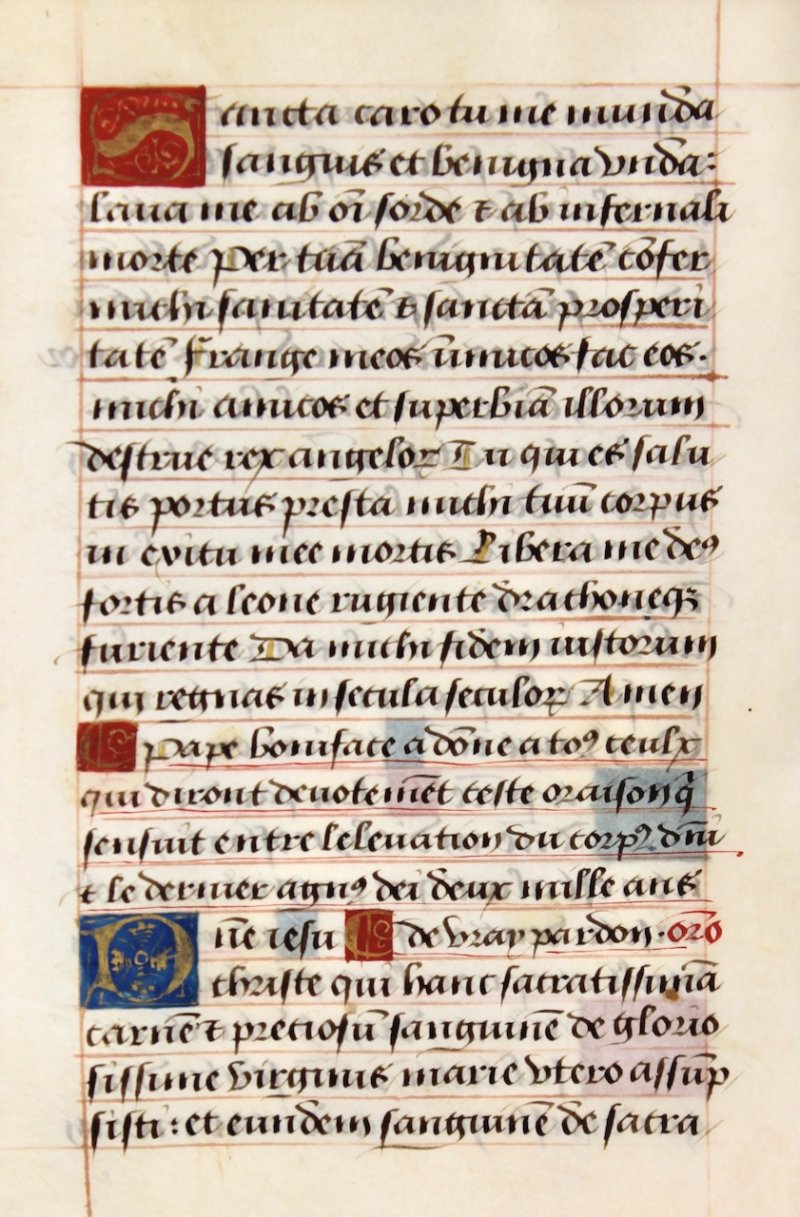 Sancta caro tu me munda
sanguis et benigna vnda:
laua me ab oī sorde ⁊ ab infernali
morte Per tuā benignitatē cōfer
michi sanitatē ⁊ sanctā prosperi
tatē Frange meos īnimicos fac eos.
michi amicos et superbiā illorum
destrue rex angeloꝝ Tu qui es salu
tis portus presta michi tuū corpus
in exitu mee mortis Libera me deꝰ
fortis a leone rugiente drachoneqꝫ
furiente Da michi fidem iustorum
qui regnas in secula seculoꝝ Amen
Pape boniface a dōne a toꝰ ceulx
qui diront deuotemēt ceste oraison q̄
sensuit entre leleuation du corpꝰ dn̄i
⁊ le dernier agnꝰ dei deux mille ans
Dn̄e iesu de vray pardon. oro
christe qui hanc sacratissimā
carnē ⁊ preciosū sanguinē de glorio
sissime virginis marie vtero assūp
sisti: et eundem sanguinē de sacra